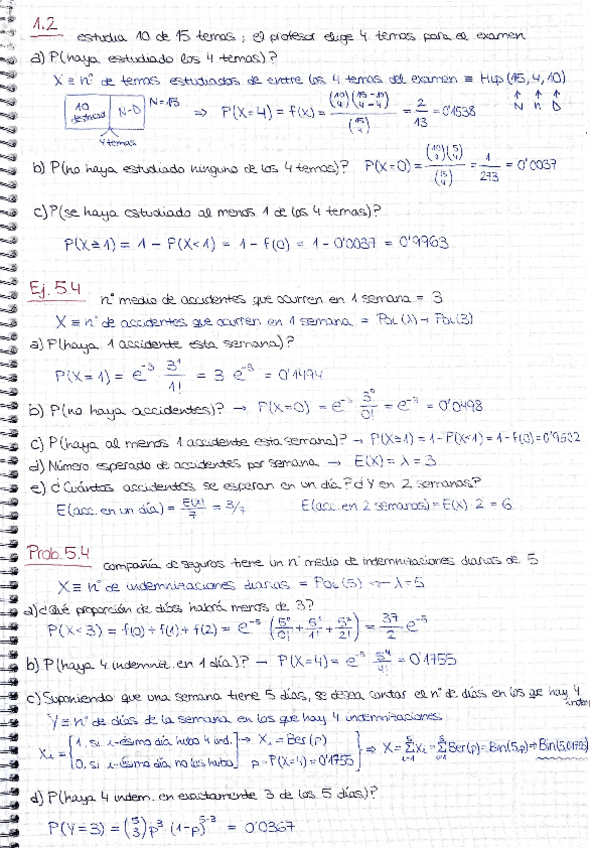 1.2 estudia 10 de 15 temas; el profesor elige 4 temas para el examen
a) P(haya estudiado los 4 temas)?
X ≡ nº de temas estudiados de entre los 4 temas del examen ≡ Hip(15, 4, 10)
10 N-D N=15 ⇒ P(X=4) = f(x) = (10 4)(15-10 4-4) / (15 4) = 2/13 = 0'1538 ↑ N ↑ n ↑ D
4 temas
b) P(no haya estudiado ninguno de los 4 temas)? P(X=0) = (10 0)(5 4) / (15 4) = 1/273 = 0'0037
c) P(se haya estudiado al menos 1 de los 4 temas)?
P(X≥1) = 1 - P(X<1) = 1 - f(0) = 1 - 0'0037 = 0'9963
Ej. 5.4 nº medio de accidentes que ocurren en 1 semana = 3
X ≡ nº de accidentes que ocurren en 1 semana = Poi(λ) → Poi(3)
a) P(haya 1 accidente esta semana)?
P(X=1) = e^-3 3^1/1! = 3 e^-3 = 0'1494
b) P(no haya accidentes)? → P(X=0) = e^-3 3^0/0! = e^-3 = 0'0498
c) P(haya al menos 1 accidente esta semana)? → P(X≥1) = 1 - P(X<1) = 1 - f(0) = 0'9502
d) Número esperado de accidentes por semana → E(X) = λ = 3
e) ¿Cuántos accidentes se esperan en un día? ¿Y en 2 semanas?
E(acc. en un día) = E(X)/7 = 3/7 E(acc. en 2 semanas) = E(X)·2 = 6
Prob. 5.4 compañía de seguros tiene un nº medio de indemnizaciones diarias de 5
X ≡ nº de indemnizaciones diarias = Poi(5) → λ=5
a) ¿Qué proporción de días habrá menos de 3?
P(X<3) = f(0) + f(1) + f(2) = e^-5 (5^0/0! + 5^1/1! + 5^2/2!) = 37/2 e^-5
b) P(haya 4 indemniz. en 1 día)? → P(X=4) = e^-5 5^4/4! = 0'1755
c) Suponiendo que una semana tiene 5 días, se desea contar el nº de días en los que hay 4 indem
Y ≡ nº de días de la semana en los que hay 4 indemnizaciones
Xi = {1, si i-ésimo día hubo 4 ind. → Xi = Ber(p)
0, si i-ésimo día no los hubo} p = P(X=4) = 0'1755 ⇒ X = Σ Xi = Σ Ber(p) = Bin(5, p) ⇒ Bin(5, 0'1755)
d) P(haya 4 indem. en exactamente 3 de los 5 días)?
P(Y=3) = (5 3) p^3 · (1-p)^5-3 = 0'0367